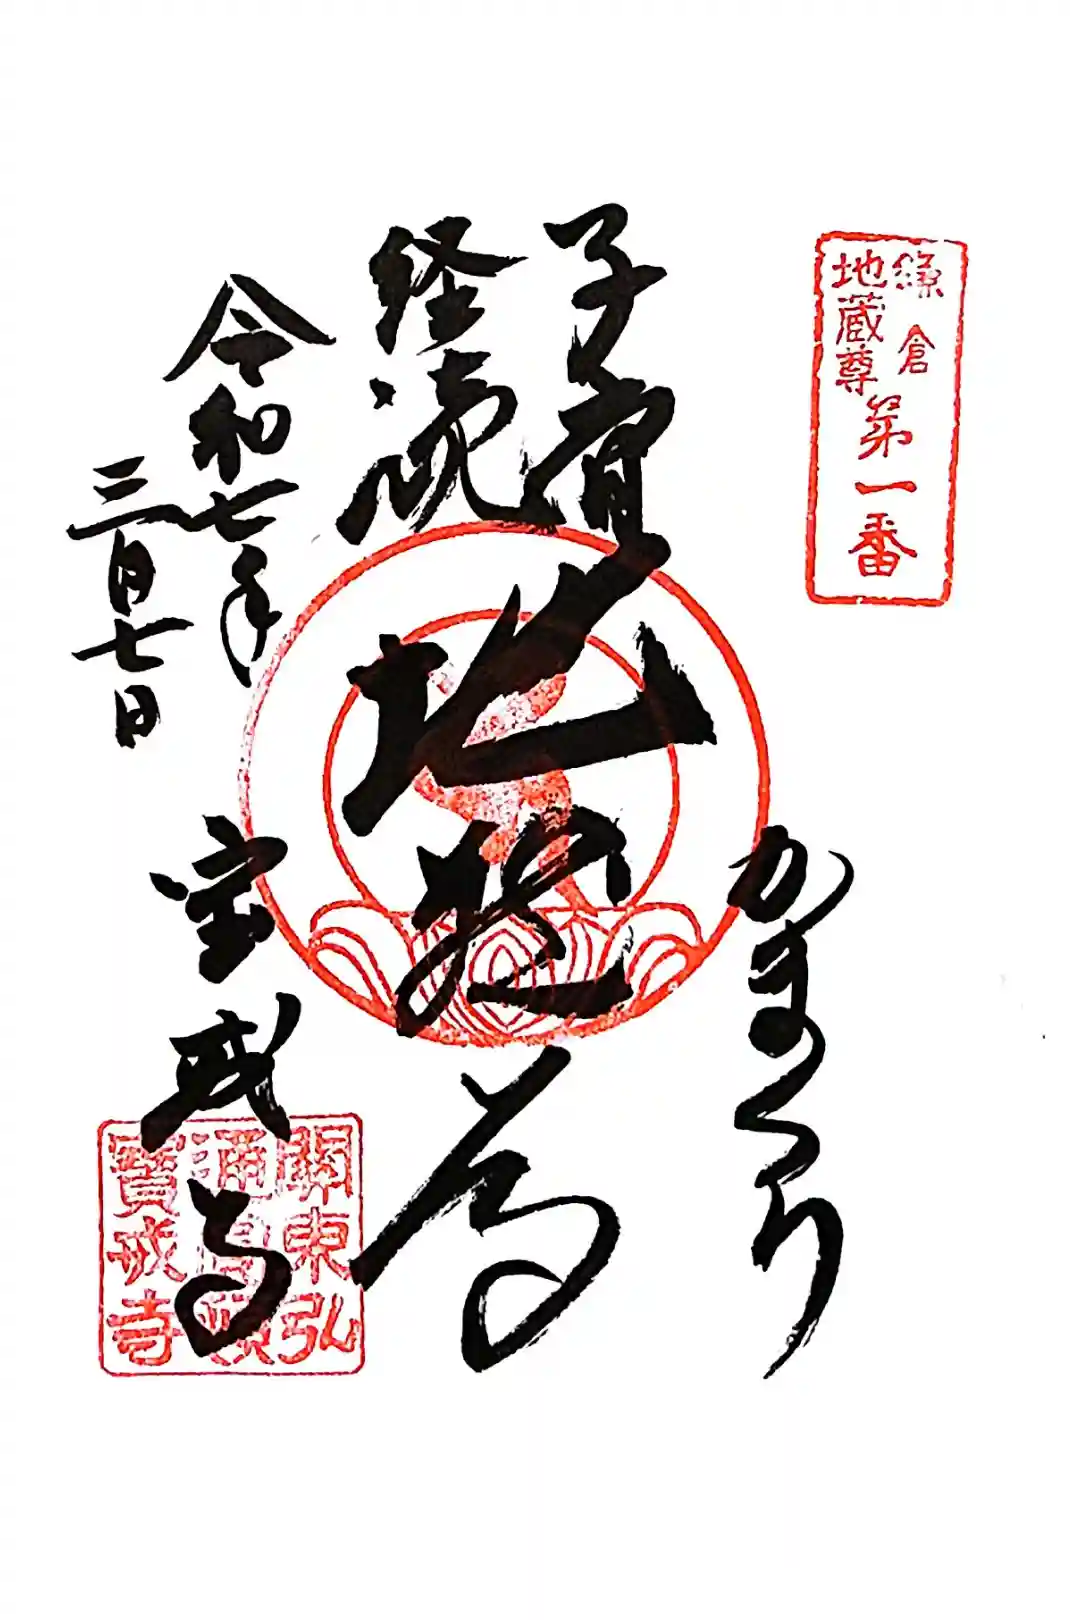 鎌倉
地蔵尊
第一番
かまくら
子育
経読
地蔵尊
令和七年
三月七日
宝戒寺
關東弘
通圓頓
寶戒寺